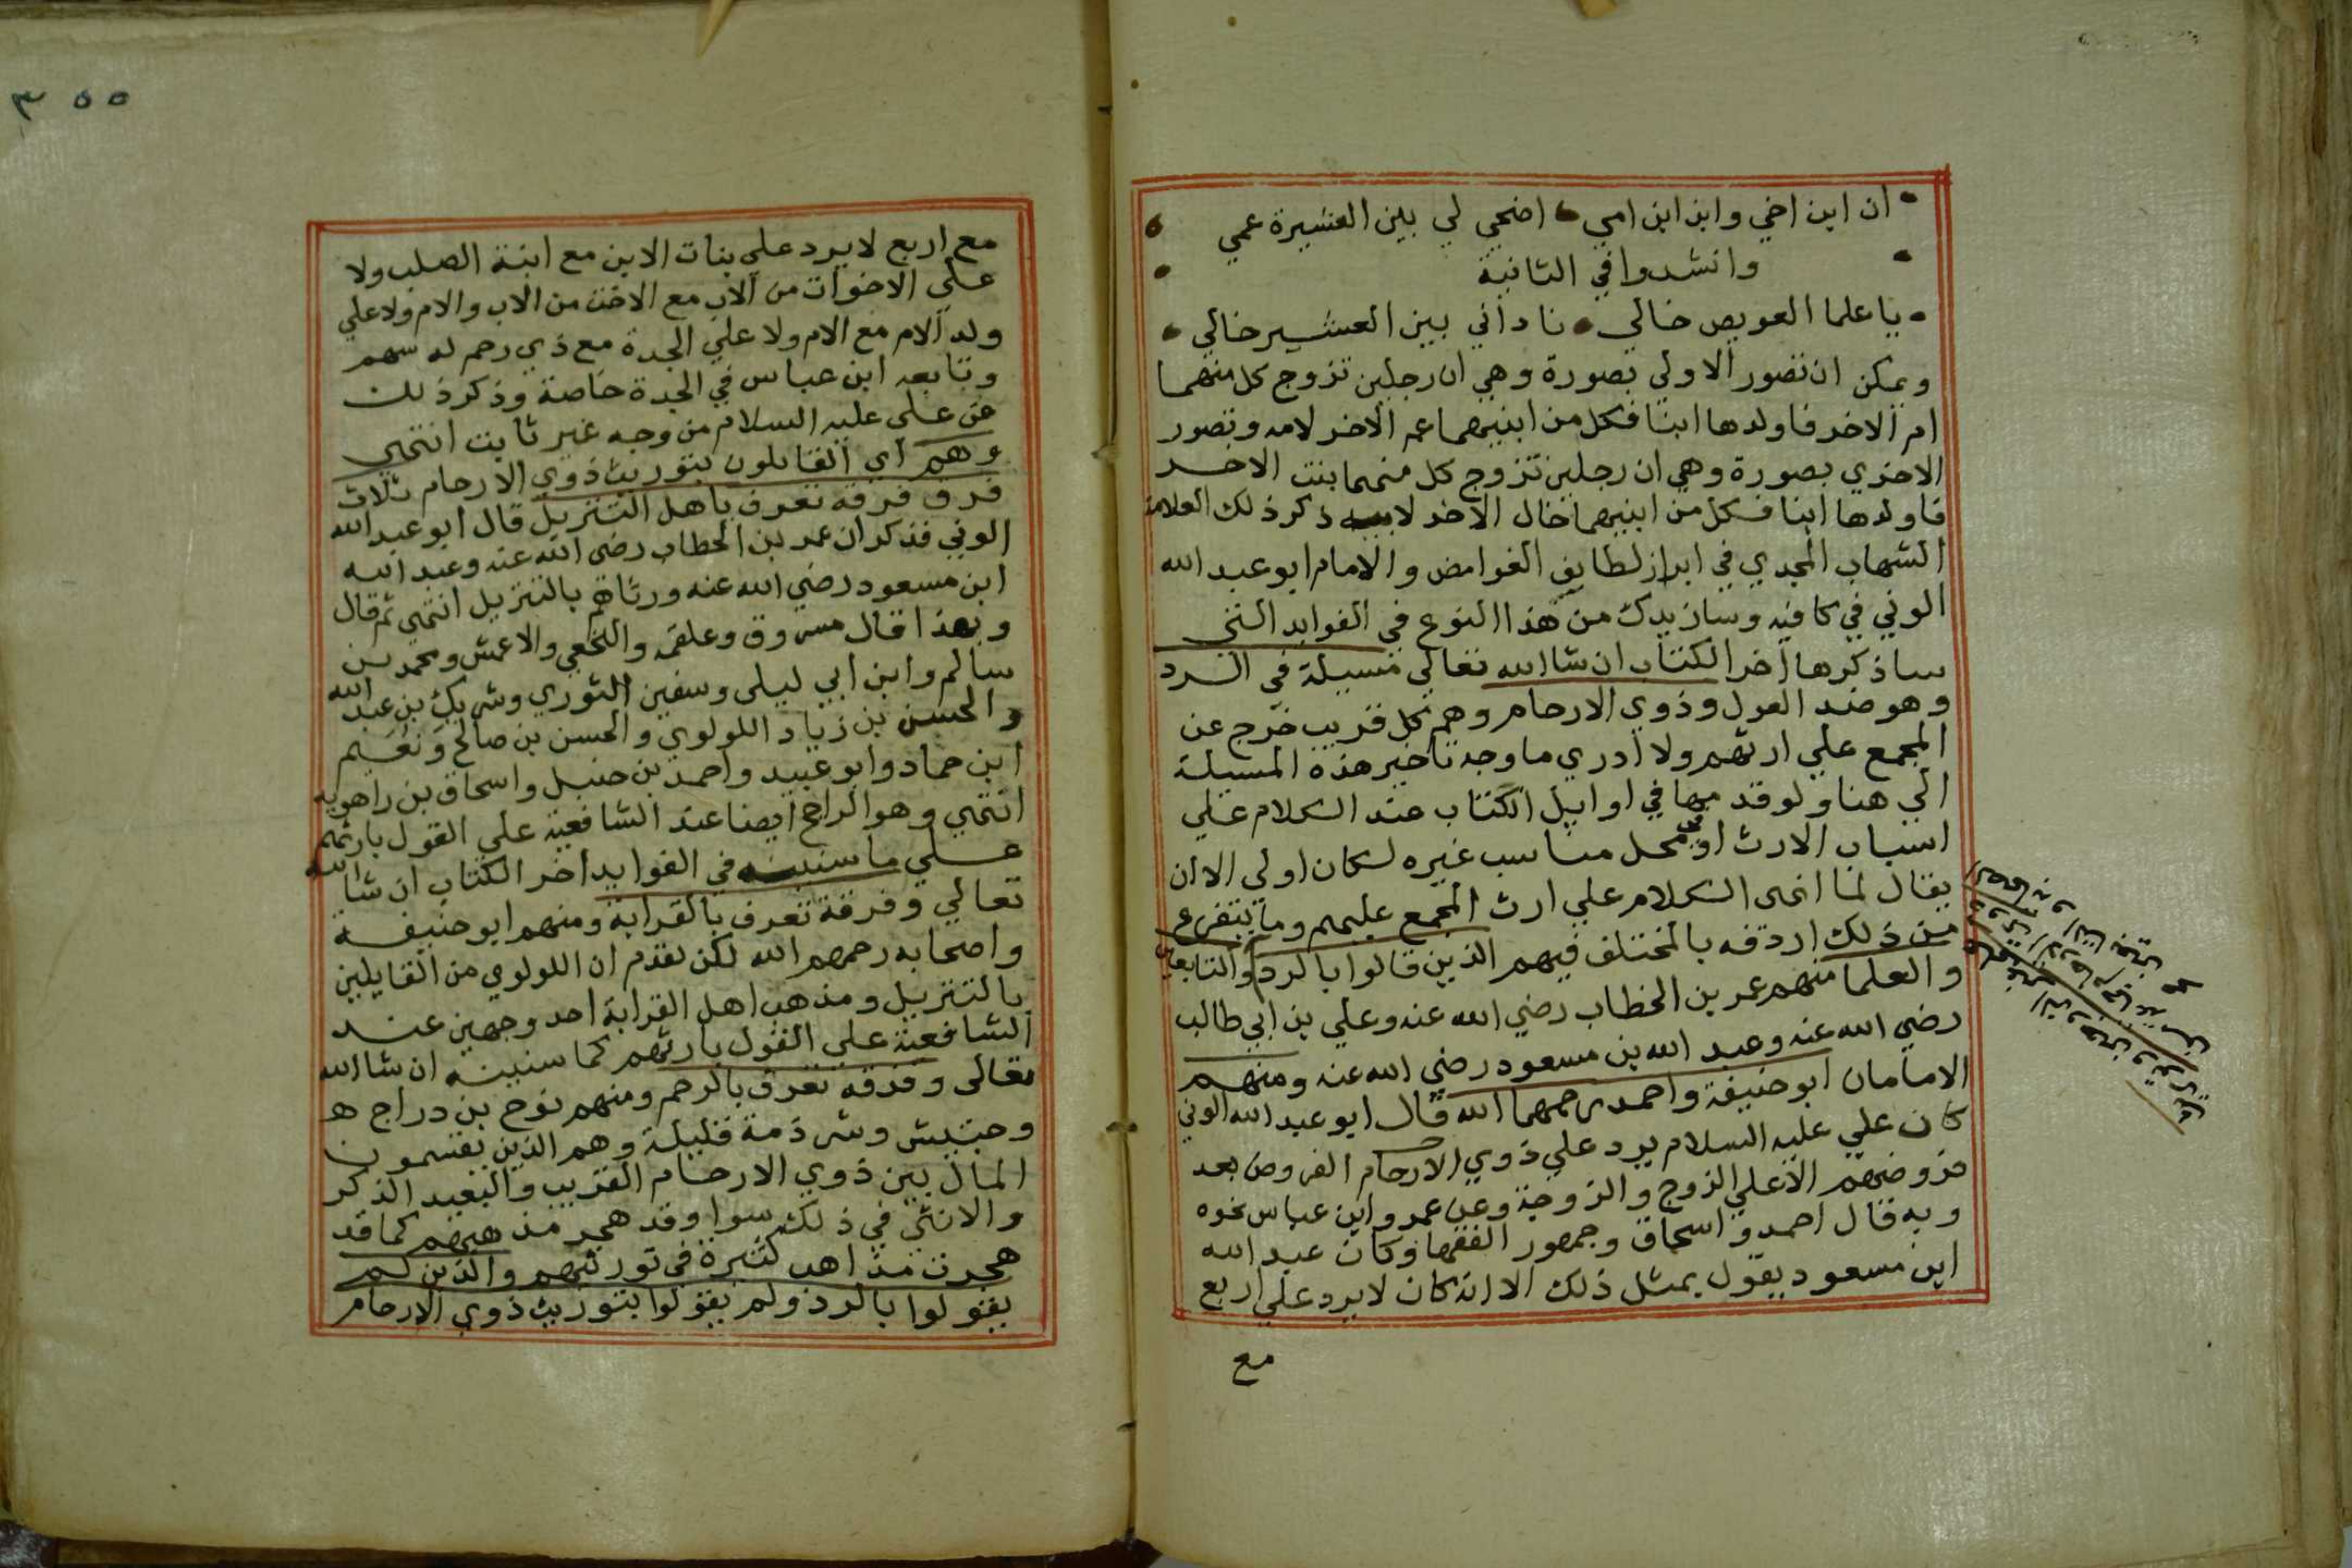 ان ابن اخي وابن ابن امي اضحي لي بين العشيرة عمي
وانشدوا في الثانية
ياعلما العويص خالي ناداني بين العشير خالي
ويمكن ان تصور الاولي بصورة وهي ان رجلين تزوج كل منهما
ام الاخر فاولدها ابنا فكل من ابنيهما عم الاخر لامه وتصور
الاخري بصورة وهي ان رجلين تزوج كل منهما بنت الاخر
فاولدها ابنا فكل من ابنيهما خال الاخر ذكر ذلك العلامة
الشهاب المجدي في ابراز لطايف الغوامض والامام ابو عبد الله
الوني في كافيه وسازيدك من هذا النوع في الفوايد التي
ساذكرها اخر الكتاب ان شا الله تعالي مسيلة في الرد
وهو ضد العول وذوي الارحام وهم كل قريب خرج عن
المجمع علي ارثهم ولا ادري ما وجه تاخير هذه المسيلة
الي هنا ولو قدمها في اوايل الكتاب عند الكلام علي
اسباب الارث او في محل مناسب غيره لكان اولي الا ان
يقال لما انهى الكلام علي ارث المجمع عليهم وما يتفرع
من ذلك اردفه بالمختلف فيهم الذين قالوا بالرد والتابعين
والعلما منهم عمر بن الخطاب رضي الله عنه وعلي بن ابي طالب
رضي الله عنه وعبد الله بن مسعود رضي الله عنه ومنهم
الامامان ابو حنيفة واحمد رحمهما الله قال ابو عبد الله الوني
كان علي عليه السلام يرد علي ذوي الارحام الفروض بعد
فروضهم الا علي الزوج والزوجة وعن عمر وابن عباس نحوه
وبه قال احمد واسحاق وجمهور الفقها وكان عبد الله
ابن مسعود يقول بمثل ذلك الا انه كان لا يرد علي اربع
مع
٣٥٥
مع اربع لا يرد علي بنات الابن مع ابنة الصلب ولا
علي الاخوات من الاب مع الاخت من الاب والام ولا علي
ولد الام مع الام ولا علي الجدة مع ذي رحم له سهم
وتابعه ابن عباس في الجدة خاصة وذكر ذلك
عن علي عليه السلام من وجه غير ثابت انتهي
وهم اي القايلون بتوريث ذوي الارحام ثلاث
فرق فرقة تعرف باهل التنزيل قال ابو عبد الله
الوني فذكر ان عمر بن الخطاب رضي الله عنه وعبد الله
ابن مسعود رضي الله عنه ورثاهم بالتنزيل انتهي ثم قال
وبهذا قال مسروق وعلقمه والنخعي والاعمش ومحمد بن
سالم وابن ابي ليلى وسفين الثوري وشريك بن عبد الله
والحسن بن زياد اللولوي والحسن بن صالح ونعيم
ابن حماد وابو عبيد واحمد بن حنبل واسحاق بن راهويه
انتهي وهو الراجح ايضا عند الشافعية علي القول بارثهم
علي ما سنبينه في الفوايد اخر الكتاب ان شا الله
تعالي وفرقة تعرف بالقرابة ومنهم ابو حنيفة
واصحابه رحمهم الله لكن تقدم ان اللولوي من القايلين
بالتنزيل ومذهب اهل القرابة احد وجهين عند
الشافعية علي القول بارثهم كما سنبينه ان شا الله
تعالى وفرقة تعرف بالرحم ومنهم نوح بن دراج
وحبيش وشرذمة قليلة وهم الذين يقسمون
المال بين ذوي الارحام القريب والبعيد الذكر
والانثي في ذلك سوا وقد هجر مذهبهم كما قد
هجرت مذاهب كثيرة في توريثهم والذين لم
يقولوا بالرد ولم يقولوا بتوريث ذوي الارحام